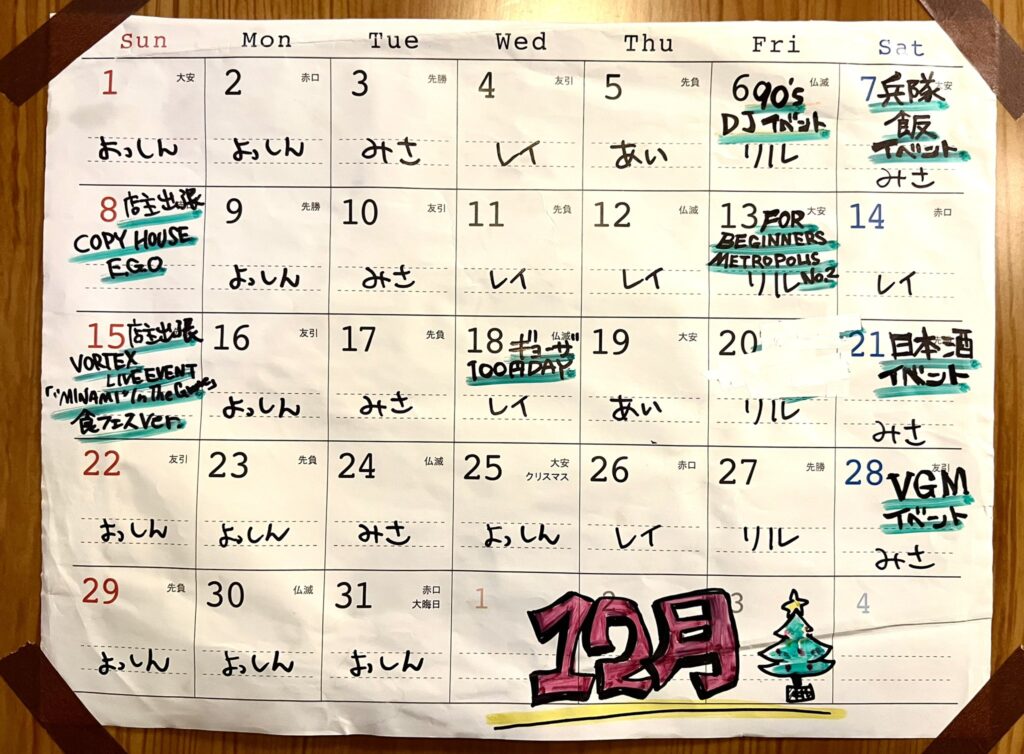 Sun Mon Tue Wed Thu Fri Sat
1 大安
よっしん
2 赤口
よっしん
3 先勝
みさ
4 友引
レイ
5 先負
あい
6 90's 仏滅
DJイベント
リル
7 兵隊
飯
イベント
みさ
8 店主出張
COPY HOUSE
EGO
9 先勝
よっしん
10 友引
みさ
11 先負
レイ
12 仏滅
レイ
13 FOR 大安
BEGINNERS
METROPOLIS
No.2
リル
14 赤口
レイ
15 店主出張
VORTEX
LIVE EVENT
"MINAMI" In The
食フェスVer.
16 友引
よっしん
17 先負
みさ
18 ギョーザ 仏滅
100円DAY
レイ
19 大安
あい
20
リル
21 日本酒
イベント
みさ
22 友引
よっしん
23 先負
よっしん
24 仏滅
みさ
25 大安
クリスマス
よっしん
26 赤口
レイ
27 先勝
リル
28 友引
VGM
イベント
みさ
29 先負
よっしん
30 仏滅
よっしん
31 赤口
大晦日
よっしん
1
2
3
4
12月